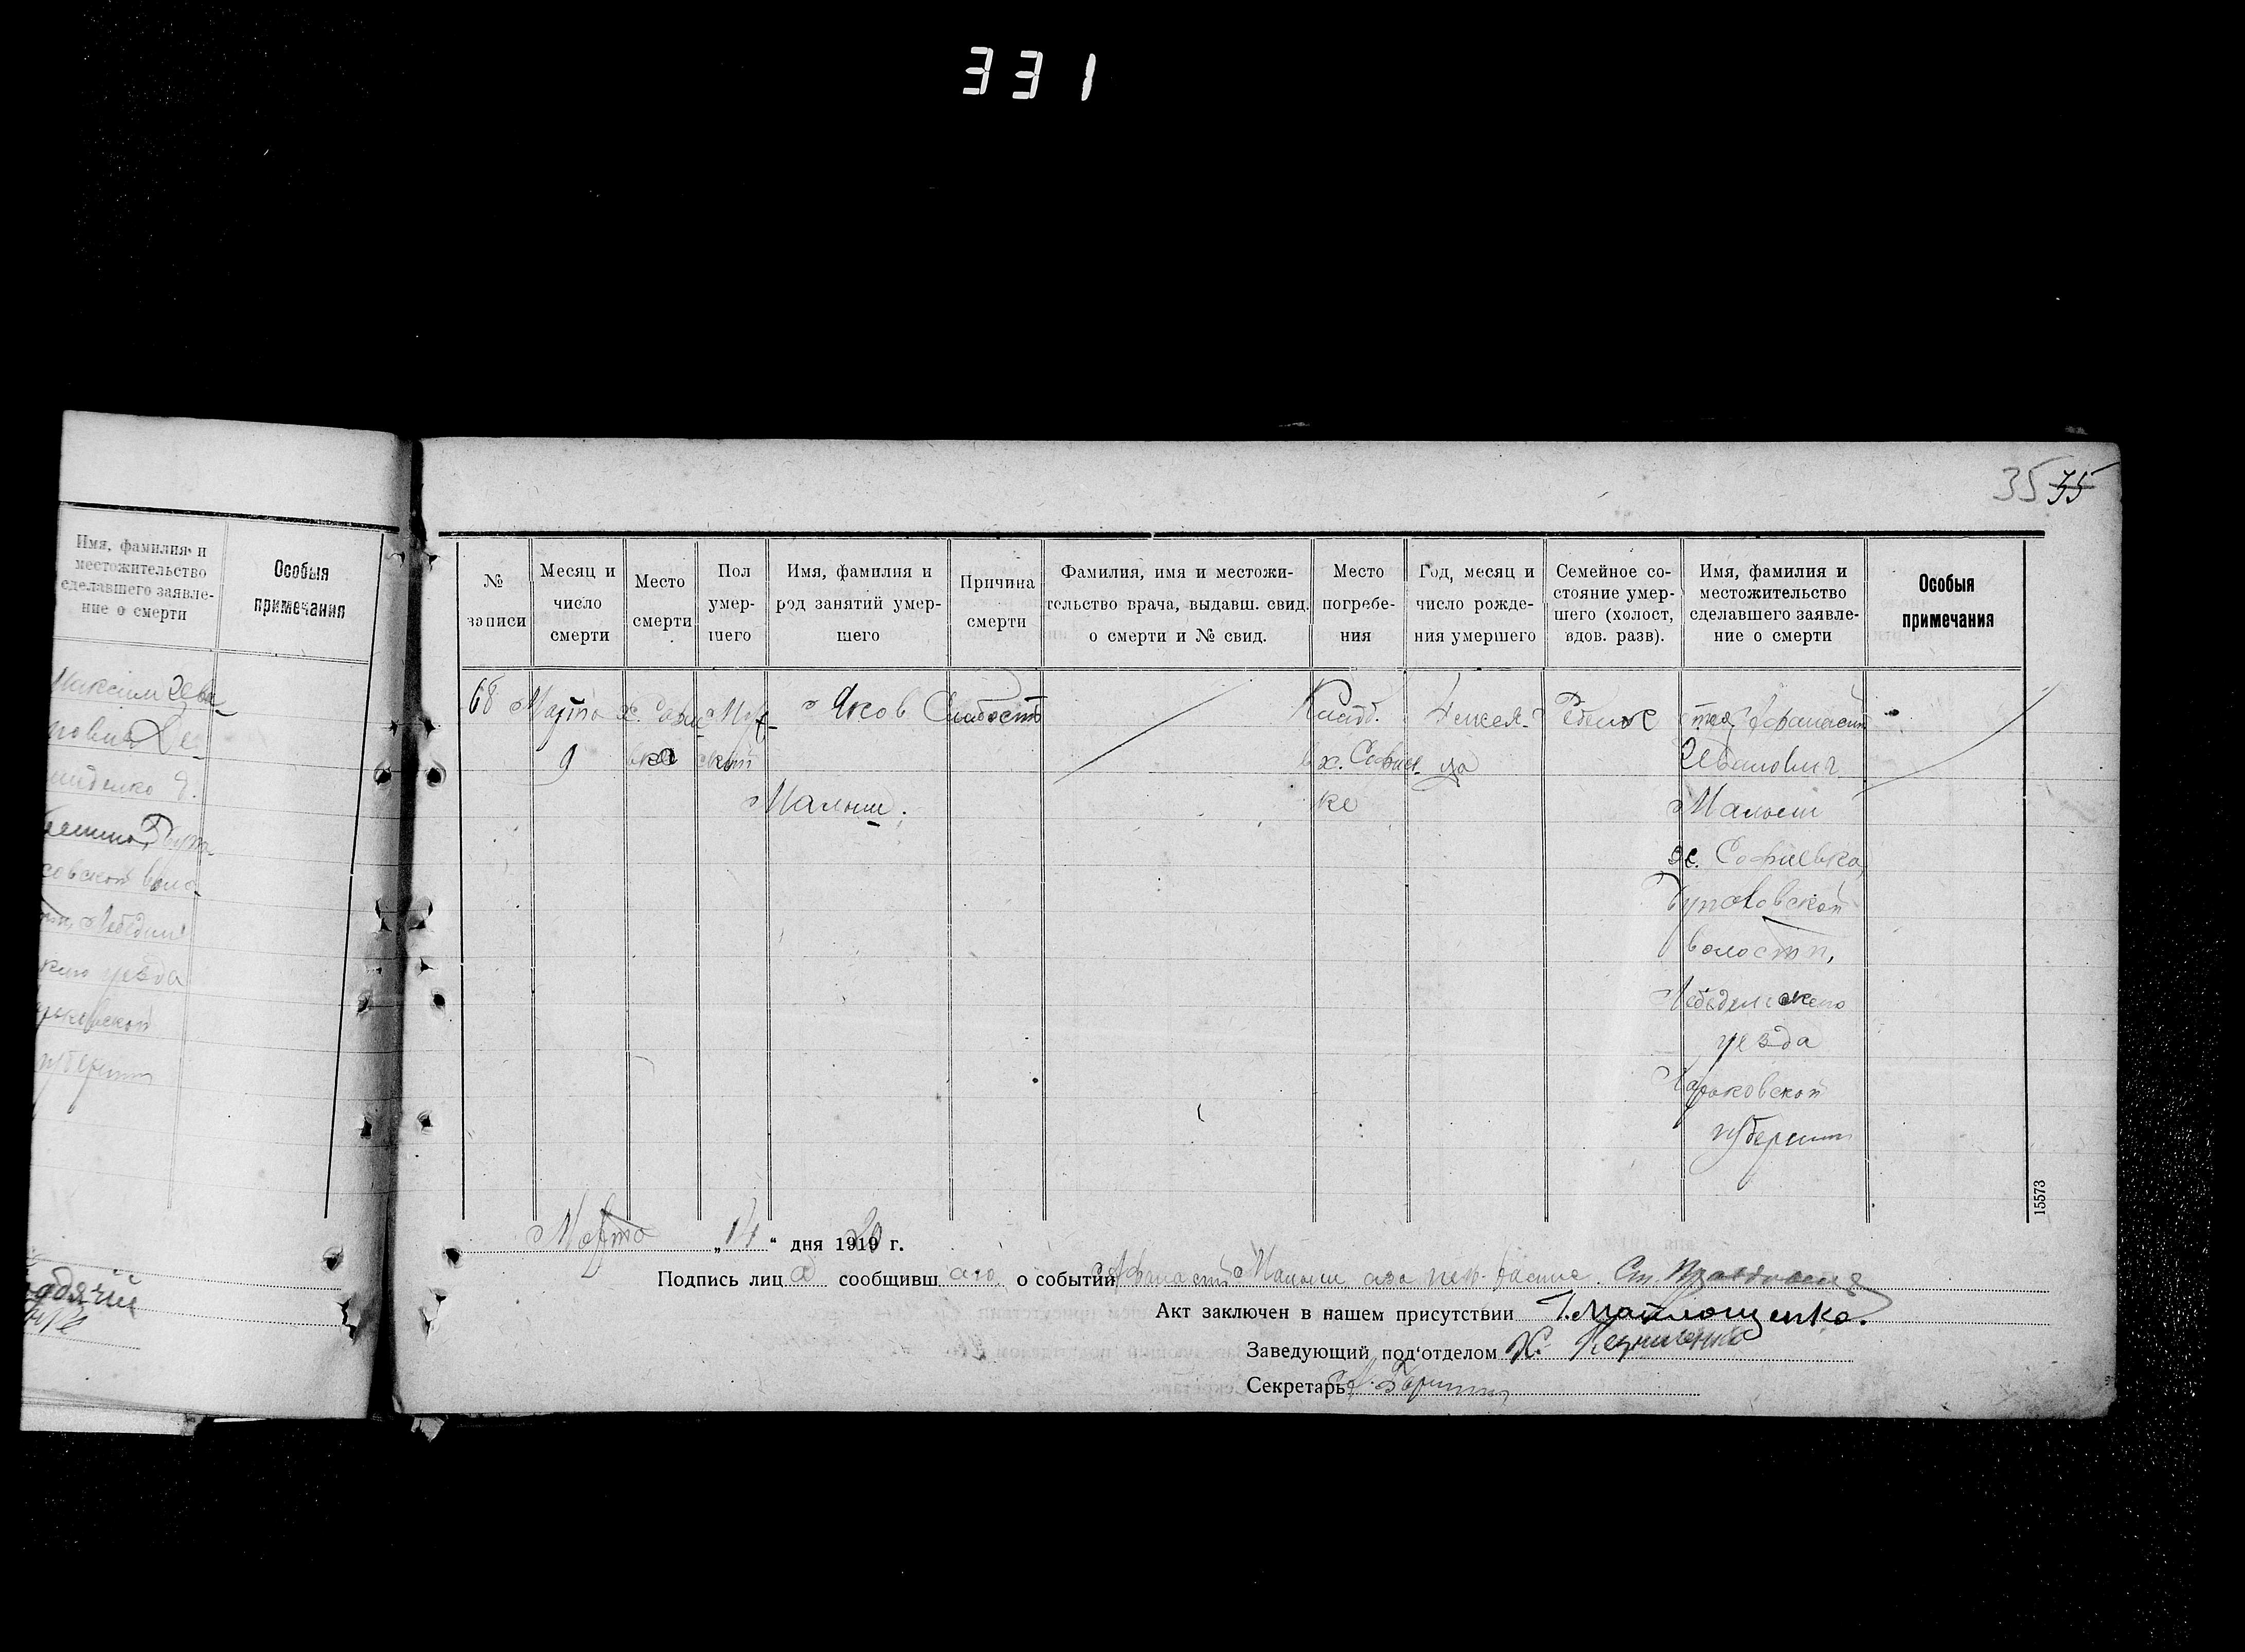 331
35 35
Имя, фамилия и
местожительство
сделавшего заявле-
ние о смерти
Особыя
примечания
Максим Ива-
нович
совской воло-
уезда
губернии
№
записи
Месяц и
число
смерти
Место
смерти
Пол
умер-
шего
Имя, фамилия и
род занятий умер-
шего
Причина
смерти
Фамилия, имя и местожи-
тельство врача, выдавш. свид.
о смерти и № свид.
Место
погребе-
ния
Год, месяц и
число рожде-
ния умершего
Семейное со-
стояние умер-
шего (холост,
вдов. разв).
Имя, фамилия и
местожительство
сделавшего заявле-
ние о смерти
Особыя
примечания
68
Марта
9
х. Софие-
вка
Муж-
ской
Яков
Малыш.
Слабость
Кладб.
в х. Софиев-
ке
4 месея-
ца
Ребенок
Афанасий
Иванович
Малыш
х. Софиевка,
волости,
Лебединскаго
уезда
Харьковской
губернии
15573
Марта „14“ дня 1919 20 г.
Подпись лиц а сообщивш аго о событии Афанасий Малыш а за нег.
Акт заключен в нашем присутствии
Заведующий под‘отделом
Секретарь